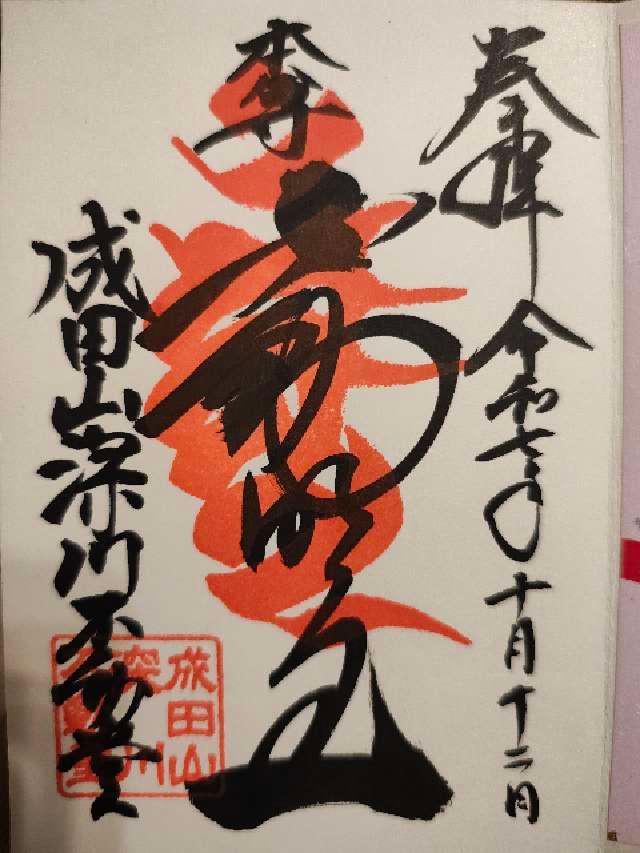 奉拝 令和七年 十月十二日
本尊
不動明王
成田山深川不動堂
成田山
深川
不動堂